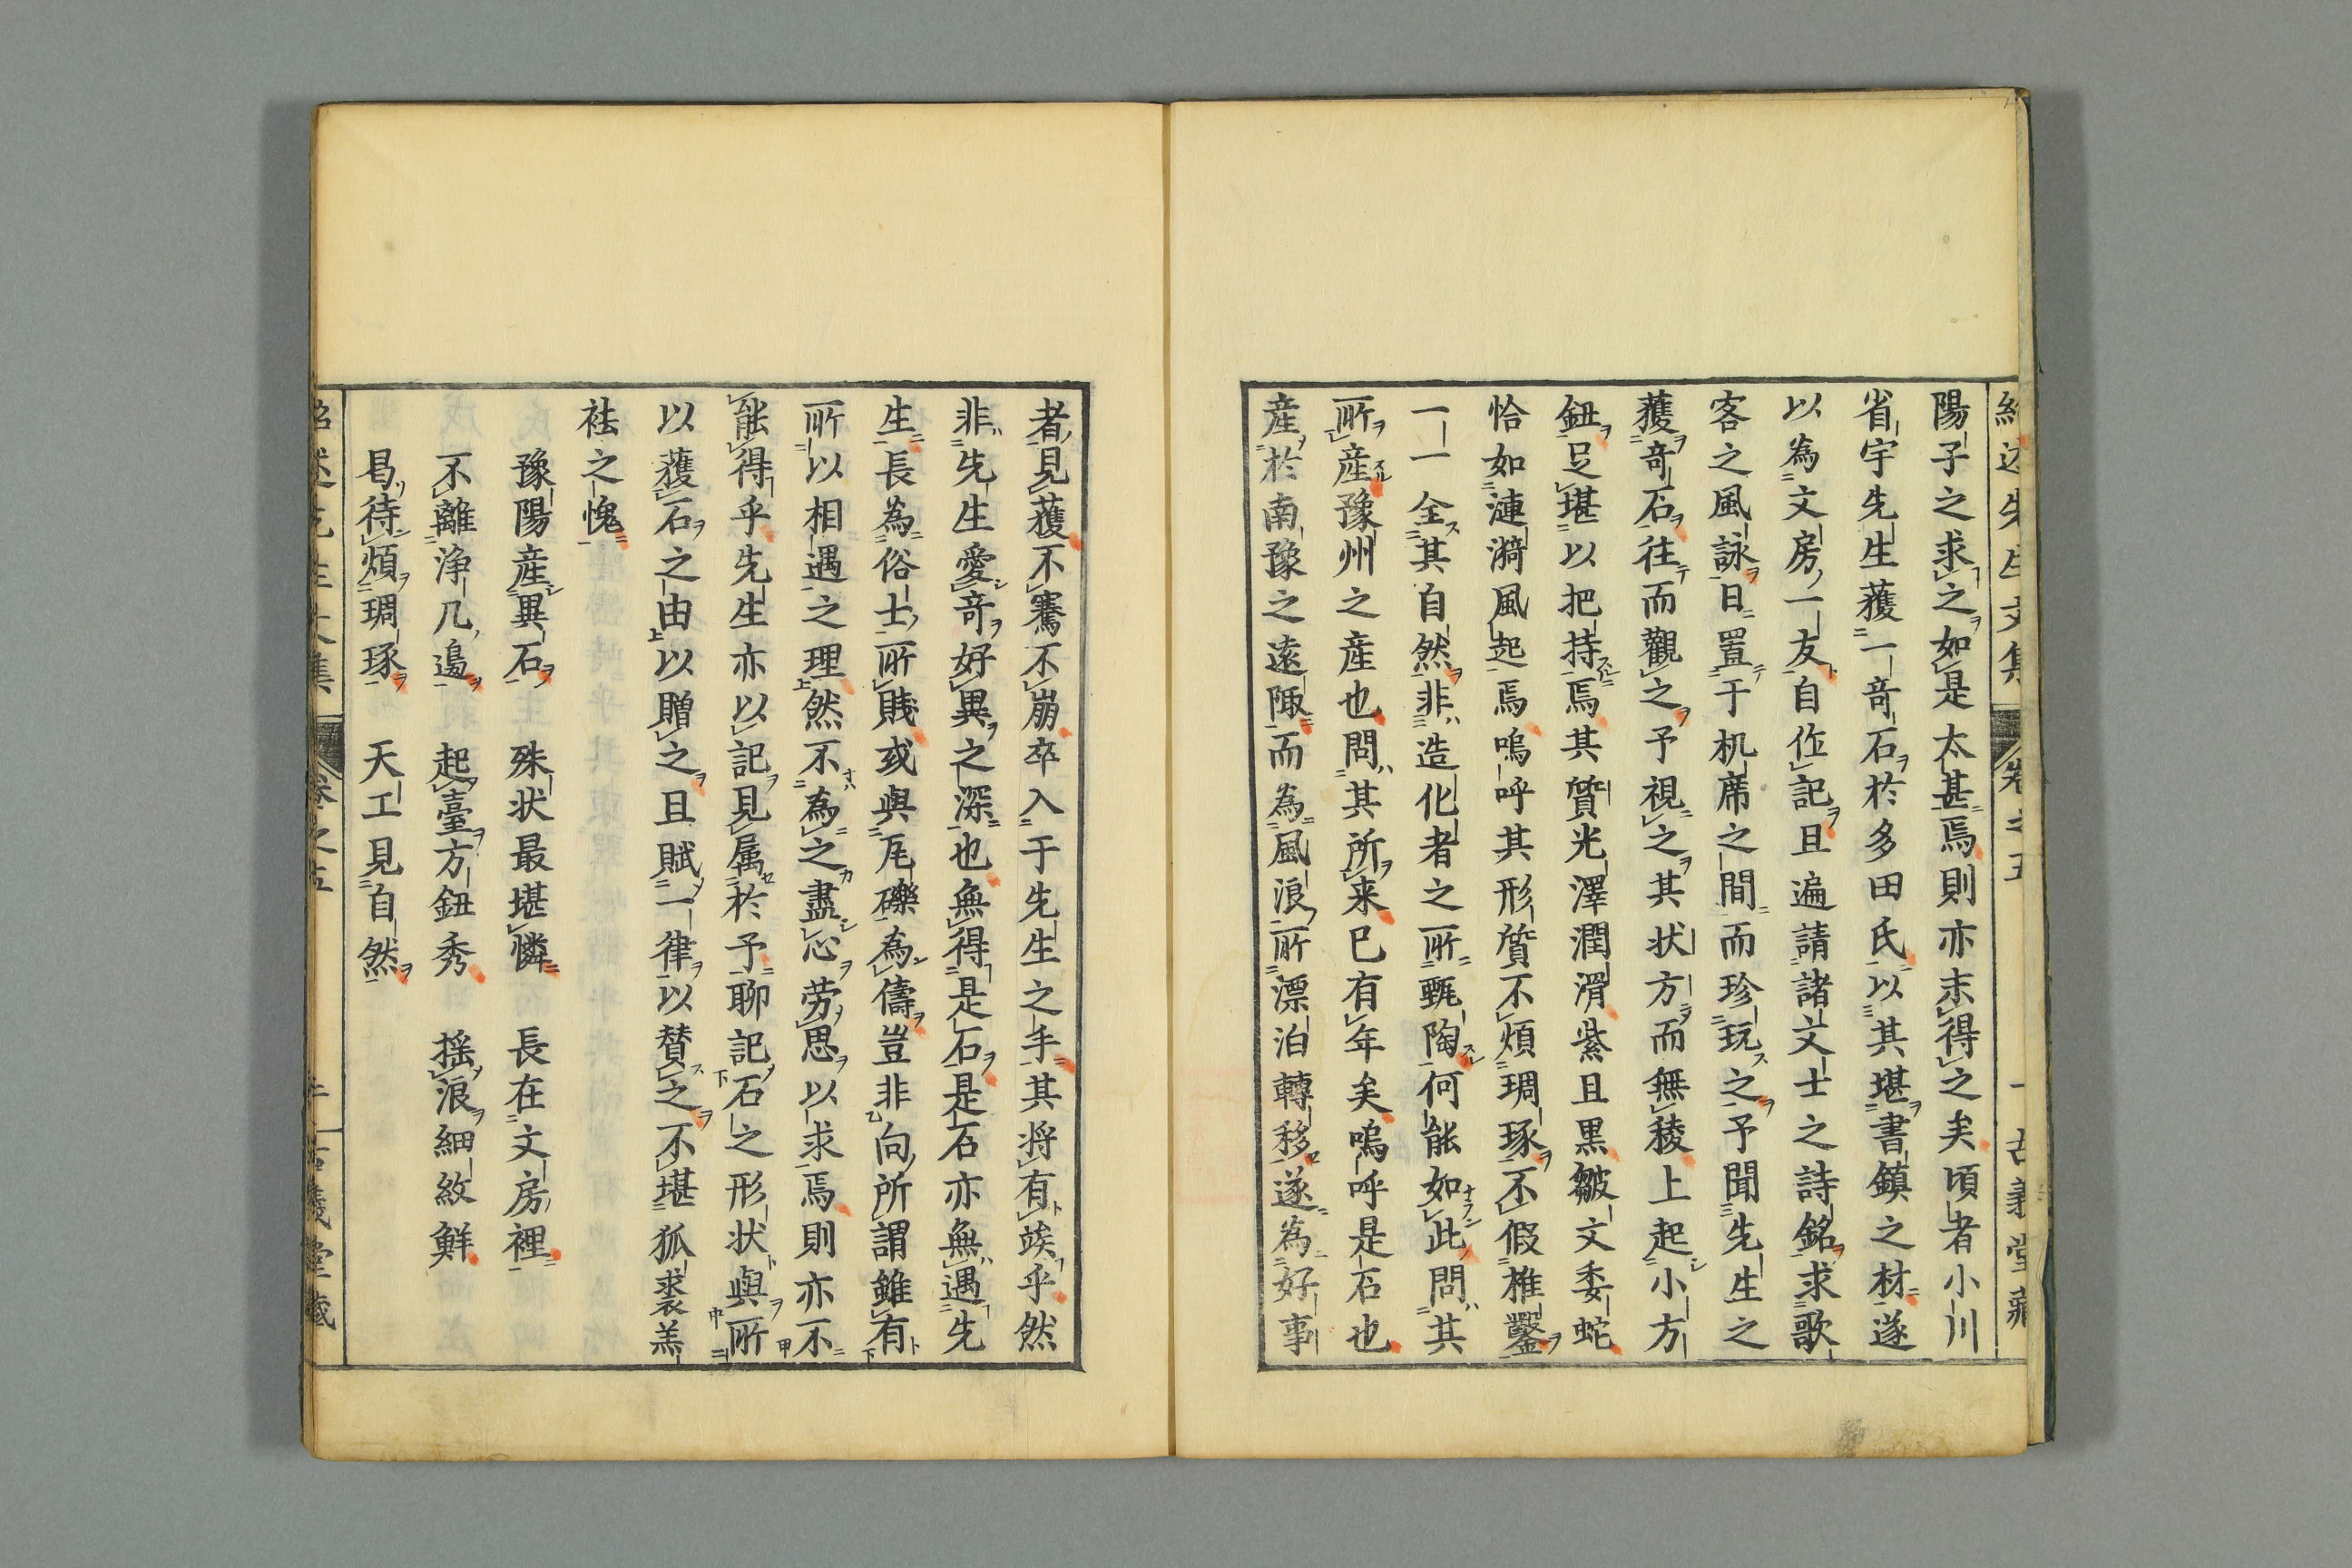 陽子之求之如是太甚焉則亦未得之矣頃者小川
省宇先生獲一奇石於多田氏以其堪書鎮之材遂
以為文房一友自作記且遍請諸文士之詩銘求歌
客之風詠日置于机席之間而珍玩之予聞先生之
獲奇石往而觀之予視之其状方而無稜上起小方
鈕足堪以把持焉其質光澤潤滑紫且黒皺文委蛇
恰如漣漪風起焉嗚呼其形質不煩琱琢不假椎鑿
一一全其自然非造化者之所甄陶何能如此問其
所産豫州之産也問其所来已有年矣嗚呼是石也
産於南豫之遠陬而為風浪所漂泊轉移遂為好事
者見獲不騫不崩卒入于先生之手其将有竢乎然
非先生愛奇好異之深也無得是石是石亦無遇先
生長為俗士所賤或與瓦礫為儔豈非向所謂雖有
所以相遇之理然不為之盡心劳思以求焉則亦不
能得乎先生亦以記見属於予聊記石之形状與所
以獲石之由以贈之且賦一律以賛之不堪狐裘羔
袪之愧
豫陽産異石　殊状最堪憐　長在文房裡
不離浄几邉　起臺方鈕秀　揺浪細紋鮮
曷待煩琱琢　天工見自然
紹述先生文集　卷之五　古義堂藏